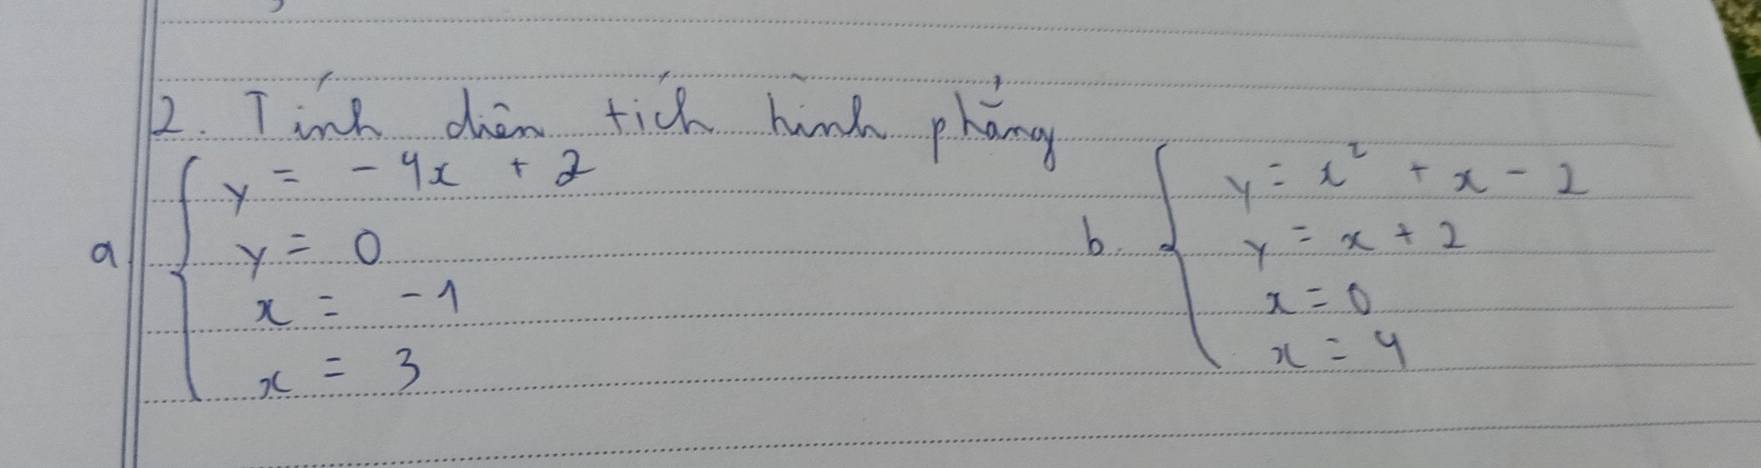 2. Tính diên tích hình phẳng
a. y = -4x + 2
y = 0
x = -1
x = 3
b. y = x² + x - 2
y = x + 2
x = 0
x = 4